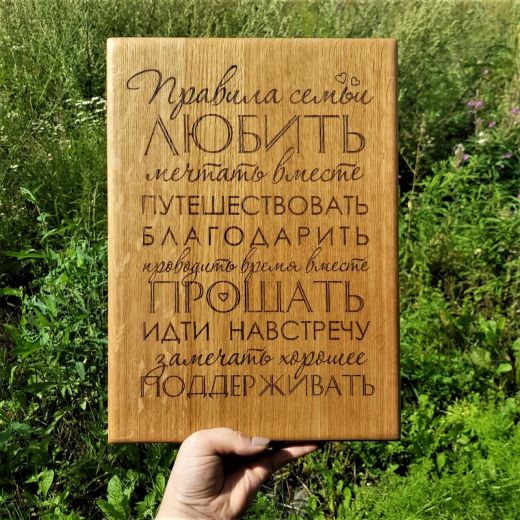 Правила семьи
ЛЮБИТЬ
мечтать вместе
ПУТЕШЕСТВОВАТЬ
БЛАГОДАРИТЬ
проводить время вместе
ПРОЩАТЬ
ИДТИ НАВСТРЕЧУ
замечать хорошее
ПОДДЕРЖИВАТЬ